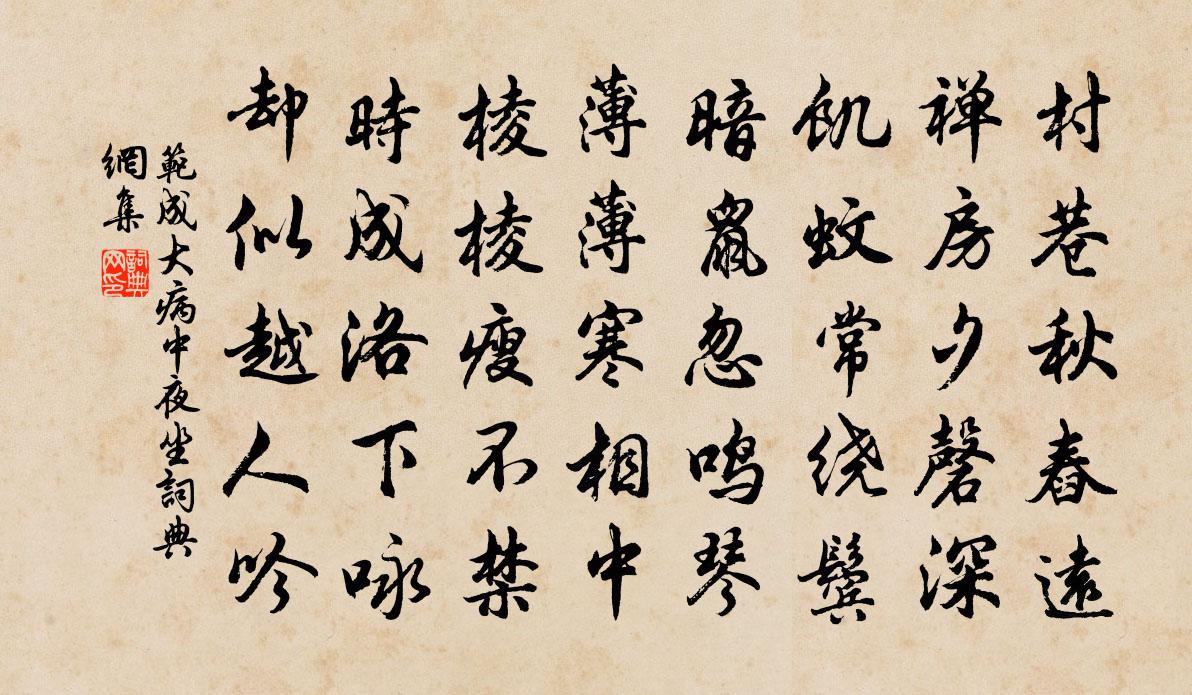 村巷秋舂遠
禅房夕磬深
飢蚊常绕鬓
暗鼠忽鸣琴
薄薄寒相中
棱棱瘦不禁
時成洛下咏
却似越人吟
範成大病中夜坐詞典
網集
詞典
网印